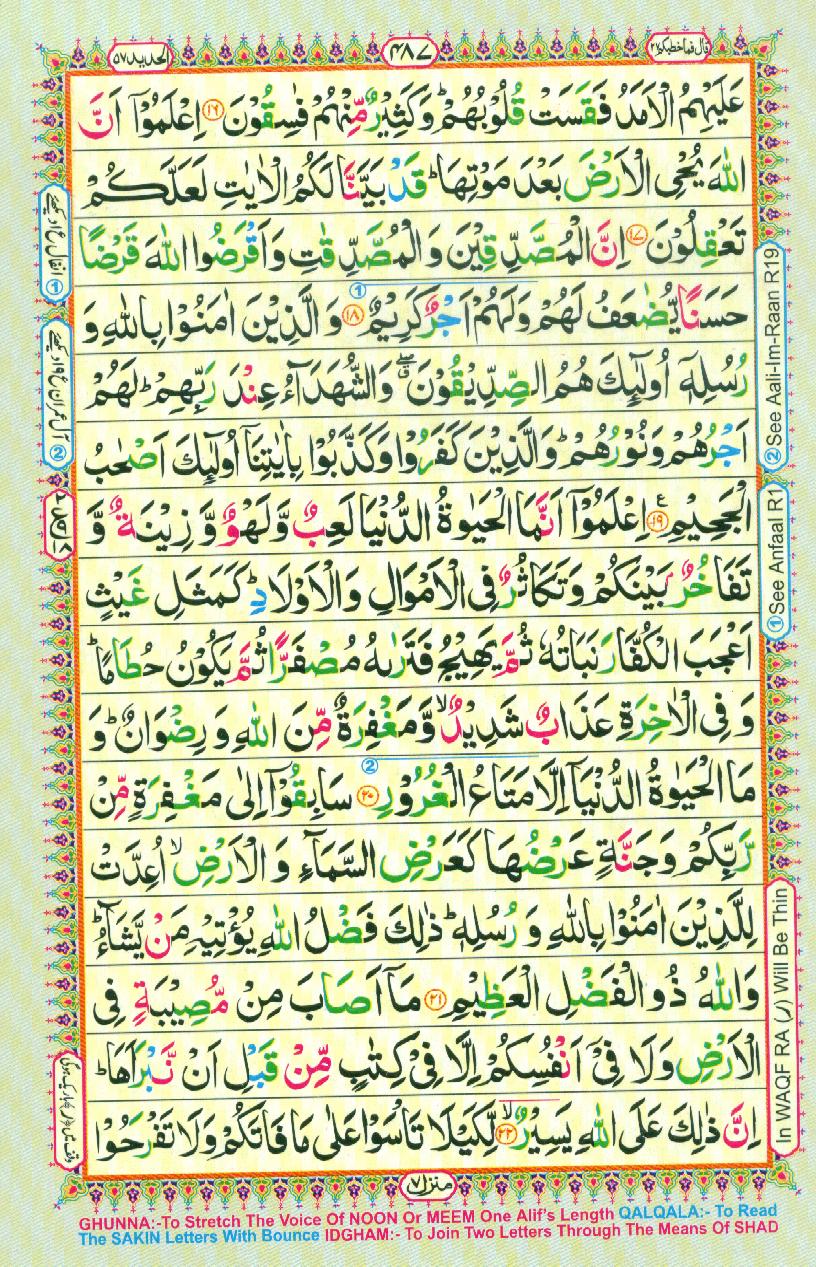 قال فما خطبكم ٢٧
٤٨٧
الحديد ٥٧
عَلَيْهِمُ الْاَمَدُ فَقَسَتْ قُلُوْبُهُمْ ؕ وَكَثِيْرٌ مِّنْهُمْ فٰسِقُوْنَ ﴿۱۶﴾ اِعْلَمُوْۤا اَنَّ
اللّٰهَ يُحْىِ الْاَرْضَ بَعْدَ مَوْتِهَا ؕ قَدْ بَيَّنَّا لَكُمُ الْاٰيٰتِ لَعَلَّكُمْ
تَعْقِلُوْنَ ﴿۱۷﴾ اِنَّ الْمُصَّدِّقِيْنَ وَ الْمُصَّدِّقٰتِ وَاَقْرَضُوا اللّٰهَ قَرْضًا
حَسَنًا يُّضٰعَفُ لَهُمْ وَلَهُمْ اَجْرٌ كَرِيْمٌ ﴿۱۸﴾ وَ الَّذِيْنَ اٰمَنُوْا بِاللّٰهِ وَ
رُسُلِهٖۤ اُولٰٓئِكَ هُمُ الصِّدِّيْقُوْنَ ۖ وَالشُّهَدَآءُ عِنْدَ رَبِّهِمْ ؕ لَهُمْ
اَجْرُهُمْ وَنُوْرُهُمْ ؕ وَالَّذِيْنَ كَفَرُوْا وَكَذَّبُوْا بِاٰيٰتِنَاۤ اُولٰٓئِكَ اَصْحٰبُ
الْجَحِيْمِ ﴿۱۹﴾ اِعْلَمُوْۤا اَنَّمَا الْحَيٰوةُ الدُّنْيَا لَعِبٌ وَّلَهْوٌ وَّ زِيْنَةٌ وَّ
تَفَاخُرٌۢ بَيْنَكُمْ وَتَكَاثُرٌ فِى الْاَمْوَالِ وَالْاَوْلَادِ ؕ كَمَثَلِ غَيْثٍ
اَعْجَبَ الْكُفَّارَ نَبَاتُهٗ ثُمَّ يَهِيْجُ فَتَرٰىهُ مُصْفَرًّا ثُمَّ يَكُوْنُ حُطَامًا ؕ
وَ فِى الْاٰخِرَةِ عَذَابٌ شَدِيْدٌ ۙ وَّمَغْفِرَةٌ مِّنَ اللّٰهِ وَ رِضْوَانٌ ؕ وَ
مَا الْحَيٰوةُ الدُّنْيَاۤ اِلَّا مَتَاعُ الْغُرُوْرِ ﴿۲۰﴾ سَابِقُوْۤا اِلٰى مَغْفِرَةٍ مِّنْ
رَّبِّكُمْ وَجَنَّةٍ عَرْضُهَا كَعَرْضِ السَّمَآءِ وَ الْاَرْضِ ۙ اُعِدَّتْ
لِلَّذِيْنَ اٰمَنُوْا بِاللّٰهِ وَ رُسُلِهٖ ؕ ذٰلِكَ فَضْلُ اللّٰهِ يُؤْتِيْهِ مَنْ يَّشَآءُ ؕ
وَاللّٰهُ ذُو الْفَضْلِ الْعَظِيْمِ ﴿۲۱﴾ مَاۤ اَصَابَ مِنْ مُّصِيْبَةٍ فِى
الْاَرْضِ وَلَا فِىْۤ اَنْفُسِكُمْ اِلَّا فِىْ كِتٰبٍ مِّنْ قَبْلِ اَنْ نَّبْرَاَهَا ؕ
اِنَّ ذٰلِكَ عَلَى اللّٰهِ يَسِيْرٌ ﴿۲۲﴾ ۙ لِّكَيْلَا تَاْسَوْا عَلٰى مَا فَاتَكُمْ وَلَا تَفْرَحُوْا
② See Aali-Im-Raan R19
① See Anfaal R1
In WAQF RA (ر) Will Be Thin
① انفال رکوع ۱ دیکھیے
② آل عمران رکوع ۱۹ دیکھیے
منزل ٧
GHUNNA:-To Stretch The Voice Of NOON Or MEEM One Alif's Length QALQALA:- To Read
The SAKIN Letters With Bounce IDGHAM:- To Join Two Letters Through The Means Of SHAD